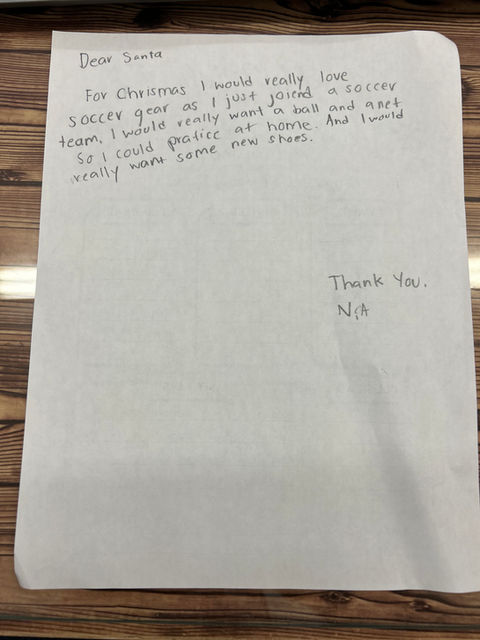 Dear Santa
For Chrismas I would really love
soccer gear as I just joiend a soccer
team. I would really want a ball and a net
So I could pratice at home. And I would
really want some new shoes.
Thank You.
NiA